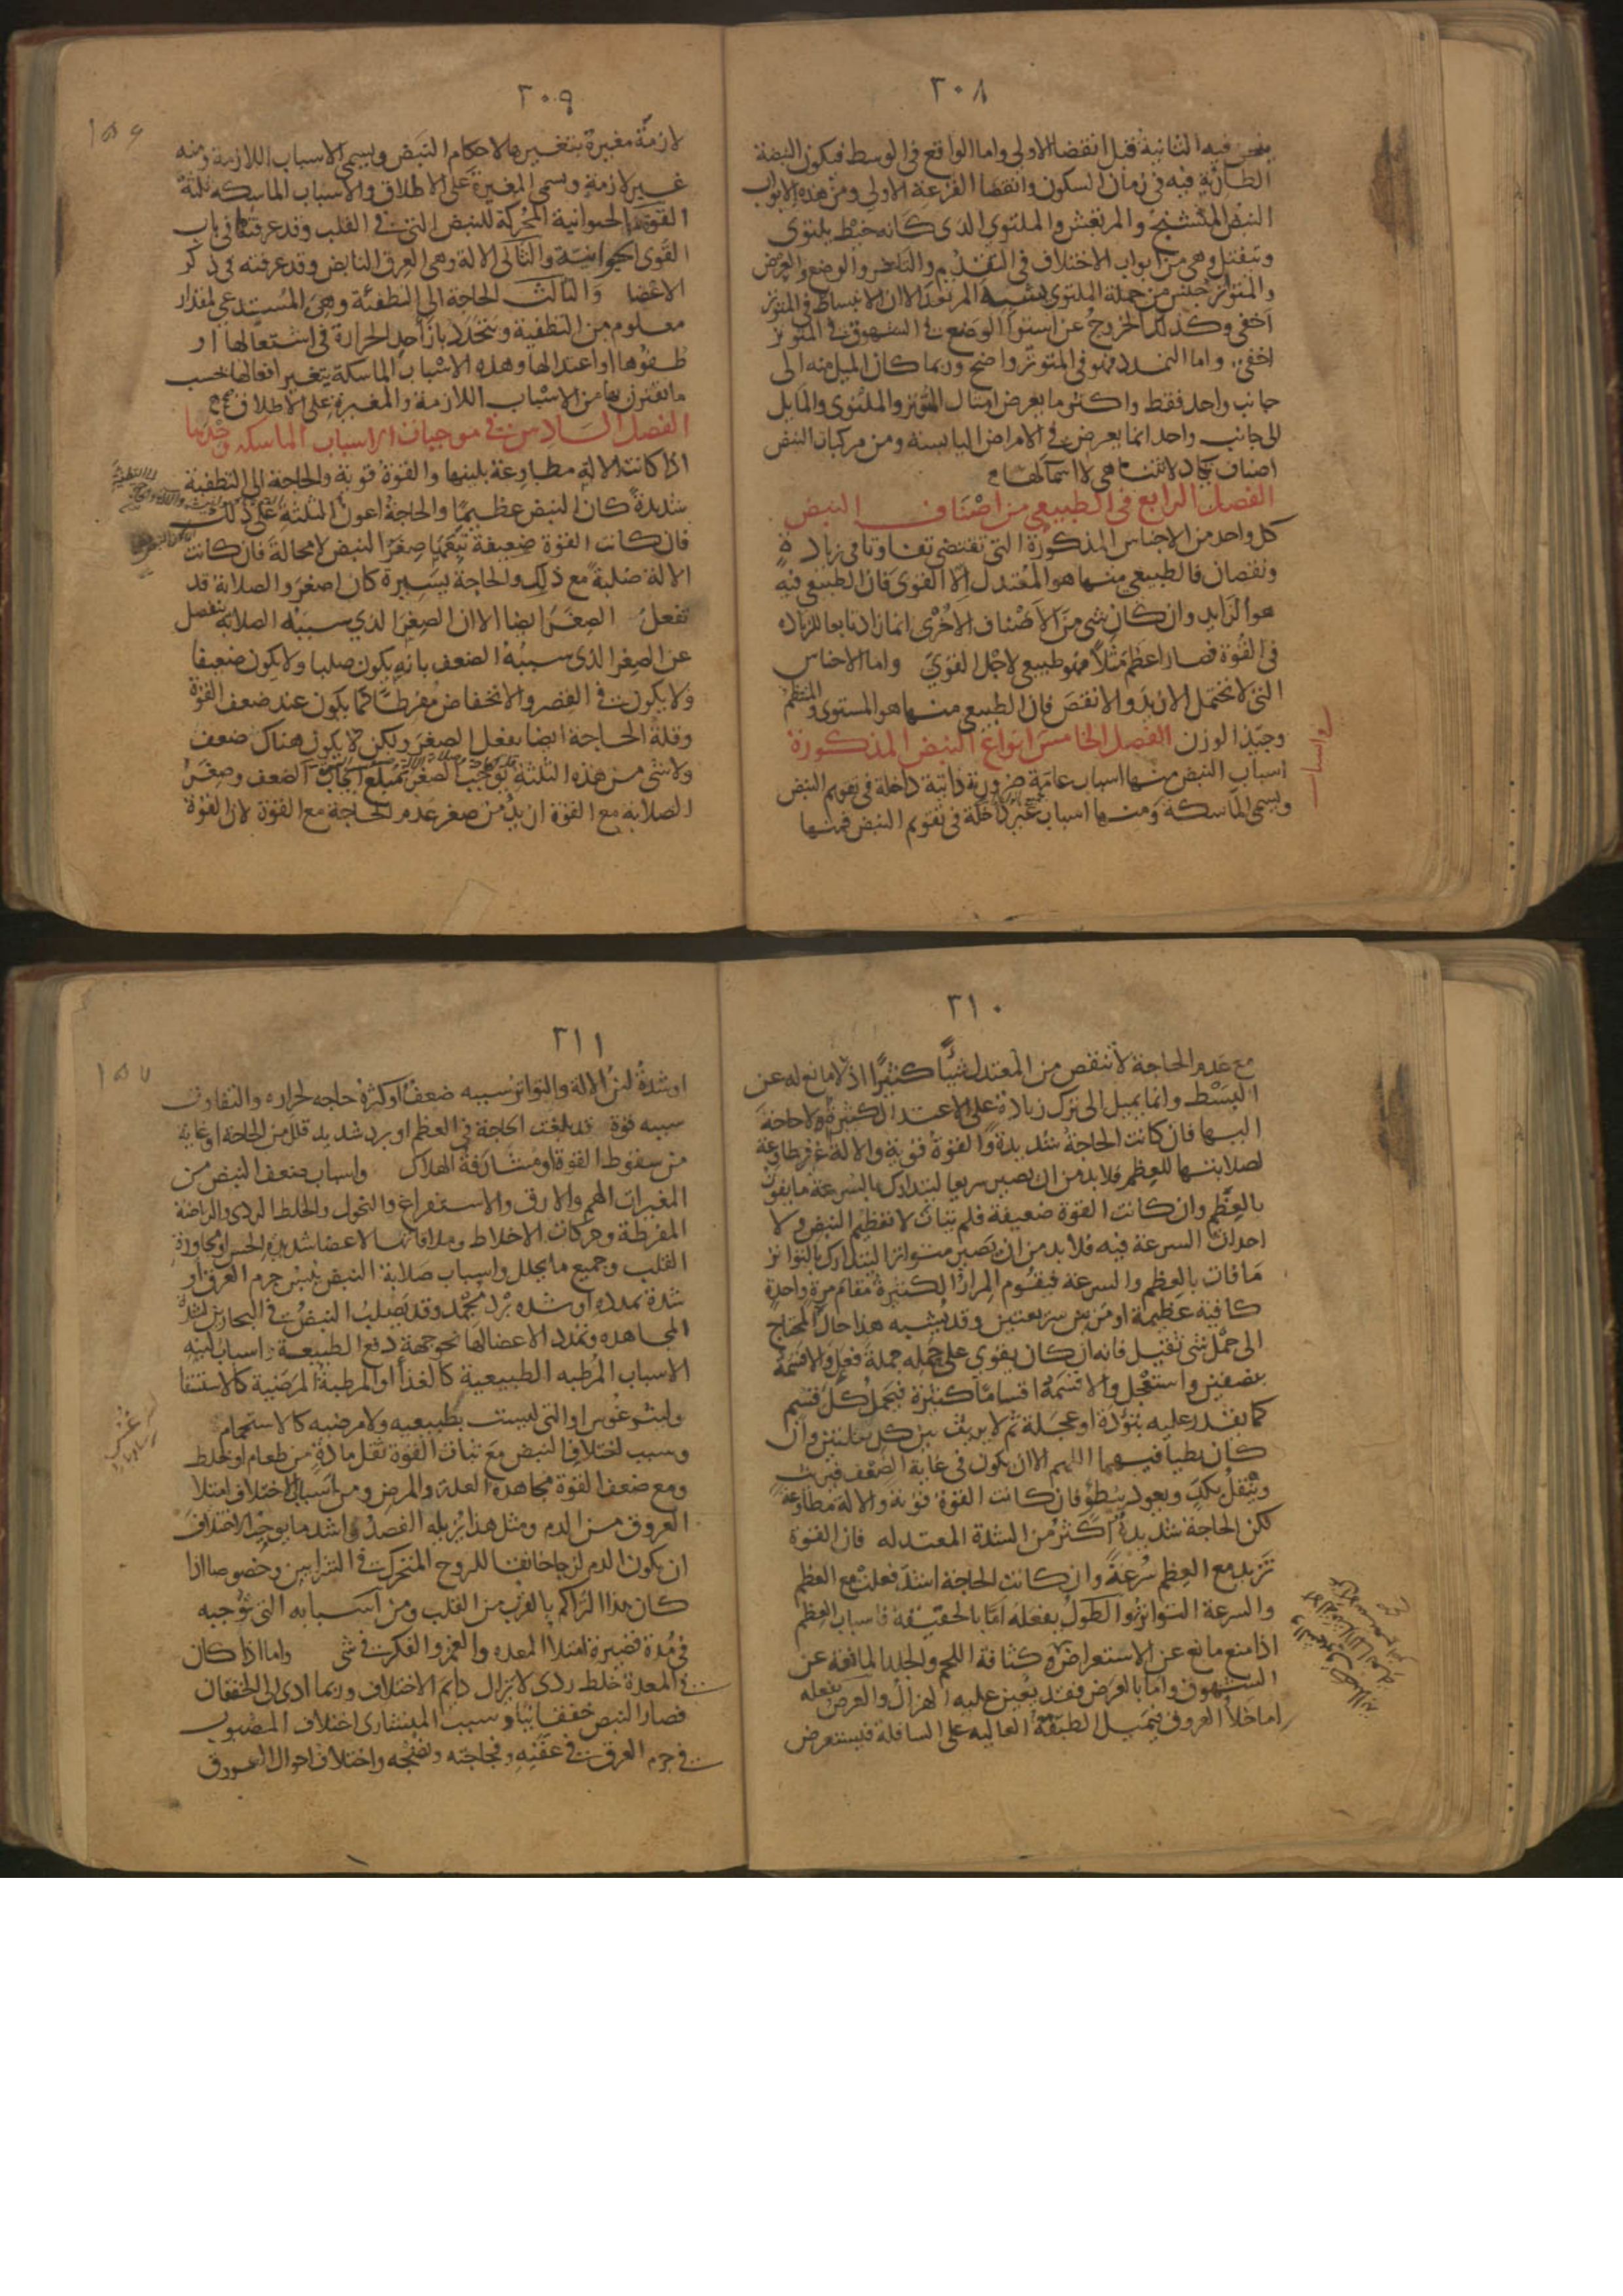 ٢٠٨
فيه الثانية قبل انقضا الاولى واما الواقع في الوسط فيكون النبضة
الطارية فيه في زمان السكون وانقضا القرعة الاولى ومن هذه الابواب
النبض المتشنج والمرتعش والملتوي الذى كانه خيط يلتوى
وينفتل وهي من ابواب الاختلاف في التقديم والتاخر والوضع والعرض
والمتوتر جنس من جملة الملتوي يشبه المرتعد الا ان الانبساط في المتوتر
اخفى وكذلك الخروج عن استوا الوضع في الشهوق في المتوتر
اخفى واما التمدد فهو في المتوتر واضح وربما كان الميل منه الى
جانب واحد فقط واكثر ما يعرض امثال المتوتر والملتوى والمايل
الى جانب واحد انما يعرض في الامراض اليابسة ومن مركبات النبض
اصناف تكاد لا تتناهى لا اسما لها
الفصل الرابع في الطبيعي من اصناف النبض
كل واحد من الاجناس المذكورة التى تقتضى تفاوتا في زيادة
ونقصان فالطبيعي منها هو المعتدل الا القوى فان الطبيعي فيه
هو الزايد وان كان شى من الاصناف الاخرى انما زاد تابعا للزيادة
في القوة فصار اعظم مثلا فهو طبيعي لاجل القوي واما الاجناس
التى لا تحتمل الازيد والانقص فان الطبيعي منها هو المستوى والمنتظم
وجيد الوزن الفصل الخامس انواع النبض المذكورة
اسباب النبض منها اسباب عامة ضرورية ذاتية داخلة في تقويم النبض
ويسمى الماسكة ومنها اسباب غير داخلة في تقويم النبض فمنها
٢٠٩
لازمة مغيرة بتغيرها لاحكام النبض ويسمى الاسباب اللازمة ومنه
غير لازمة ويسمى المغيرة على الاطلاق والاسباب الماسكه ثلثة
القوة الحيوانية المحركة للنبض التى في القلب وقد عرفتها في باب
القوى الحيوانية والثانى الالة وهى العرق النابض وقد عرفته في ذكر
الاعضا والثالث الحاجة الى التطفئة وهى المستدعي لمقدار
معلوم من التطفية ويتجدد بازا حد الحرارة في اشتعالها او
طفوها او اعتدالها وهذه الاسباب الماسكة يتغير افعالها بحسب
ما يقترن بها من الاسباب اللازمة والمغيرة على الاطلاق
الفصل السادس في موجبات الاسباب الماسكه وحدها
اذا كانت الالة مطاوعة بلينها والقوة قوية والحاجة الى التطفية
شديدة كان النبض عظيما والحاجة اعون الثلثة على ذلك
فان كانت القوة ضعيفة تبعها صغر النبض لا محالة فان كانت
الالة صلبة مع ذلك والحاجة يسيرة كان اصغر والصلابة قد
تفعل الصغر ايضا الا ان الصغر الذي سببه الصلابة ينفصل
عن الصغر الذى سببه الضعف بانه يكون صلبا ولا يكون ضعيفا
ولا يكون في القصر والانخفاض مفرطا كما يكون عند ضعف القوة
وقلة الحاجة ايضا يفعل الصغر ولكن لا يكون هناك ضعف
ولا شى من هذه الثلثة يوجب الصغر بمبلغ ايجاب الضعف وصغر
الصلابة مع القوة ازيد من صغر عدم الحاجة مع القوة لان القوة
٢١٠
مع عدم الحاجة لا تنقص من المعتدل شيا كثيرا اذ لا مانع له عن
البسط وانما يميل الى ترك زيادة على الاعتدال كثيرة ولا حاجة
اليها فان كانت الحاجة شديدة والقوة قوية والالة غير مطاوعة
لصلابتها للعظم فلا بد من ان يصير سريعا ليتدارك بالسرعة ما يفوت
بالعظم وان كانت القوة ضعيفة فلم يتات لا تعظيم النبض ولا
احداث السرعة فيه فلا بد من ان يصير متواترا ليتدارك بالتواتر
ما فات بالعظم والسرعة فيقوم المرار الكثيرة مقام مرة واحدة
كافية عظيمة او مرتين سريعتين وقد يشبه هذا حال المحتاج
الى حمل شى ثقيل فانه ان كان يقوى على حمله جملة فعل والا قسمه
بنصفين واستعجل والا قسمه اقساما كثيرة فيحمل كل قسم
كما يقدر عليه بتؤدة او عجلة ثم لا يريث بين كل نقلتين وان
كان بطيا فيهما اللهم الا ان يكون في غاية الضعف فيريث
وينقل بكد ويعود ببطؤ فان كانت القوة قوية والالة مطاوعة
لكن الحاجة شديدة اكثر من الشدة المعتدله فان القوة
تزيد مع العظم سرعة وان كانت الحاجة اشد فعلت مع العظم
والسرعة التواتر والطول يفعله اما بالحقيقة فاسباب العظم
اذا منع مانع عن الاستعراض كثافة اللحم والجلد المانعة عن
الشهوق واما بالعرض فقد يعين عليه الهزال والعرض يفعله
اما خلا العروق فيميل الطبقة العاليه على السافلة فيستعرض
٢١١
او شدة لين الالة والتواتر سببه ضعف او كثرة حاجه لحراره والتفاوت
سببه قوة قد بلغت الحاجة في العظم او برد شديد قلل من الحاجة او غاية
من سقوط القوة ومشارفة الهلاك واسباب ضعف النبض من
المغيرات الهم والارق والاستفراغ والنحول والخلط الردى والرياضة
المفرطة وحركات الاخلاط وملاقاتها لاعضا شديدة الحس ومجاورة
القلب وجميع ما يحلل واسباب صلابة النبض يبس جرم العرق او
شدة تمدده او شده برد مجمد وقد يصلب النبض في البحارين لشدة
المجاهده وتمدد الاعضا لها نحو جهة دفع الطبيعة واسباب لينه
الاسباب المرطبه الطبيعية كالغذا او المرطبة المرضية كالاستسقا
وليثوغوس او التى ليست بطبيعيه ولا مرضيه كالاستحمام
وسبب اختلاف النبض مع ثبات القوة ثقل مادة من طعام او خلط
ومع ضعف القوة مجاهدة العلة والمرض ومن اسباب الاختلاف امتلا
العروق من الدم ومثل هذا يزيله الفصد واشد ما يوجب الاختلاف
ان يكون الدم لزجا خانقا للروح المتحرك في الشرايين وخصوصا اذا
كان هذا التراكم بالقرب من القلب ومن اسبابه التى توجبه
في مدة قصيرة امتلا المعده والغم والفكر في شى واما اذا كان
في المعدة خلط ردى لا يزال دايم الاختلاف وربما ادى الى الخفقان
فصار النبض خفقانيا وسبب المنشارى اختلاف المصبوب
في جرم العرق في عفنه وفجاجته ونضجه واختلاف احوال العروق